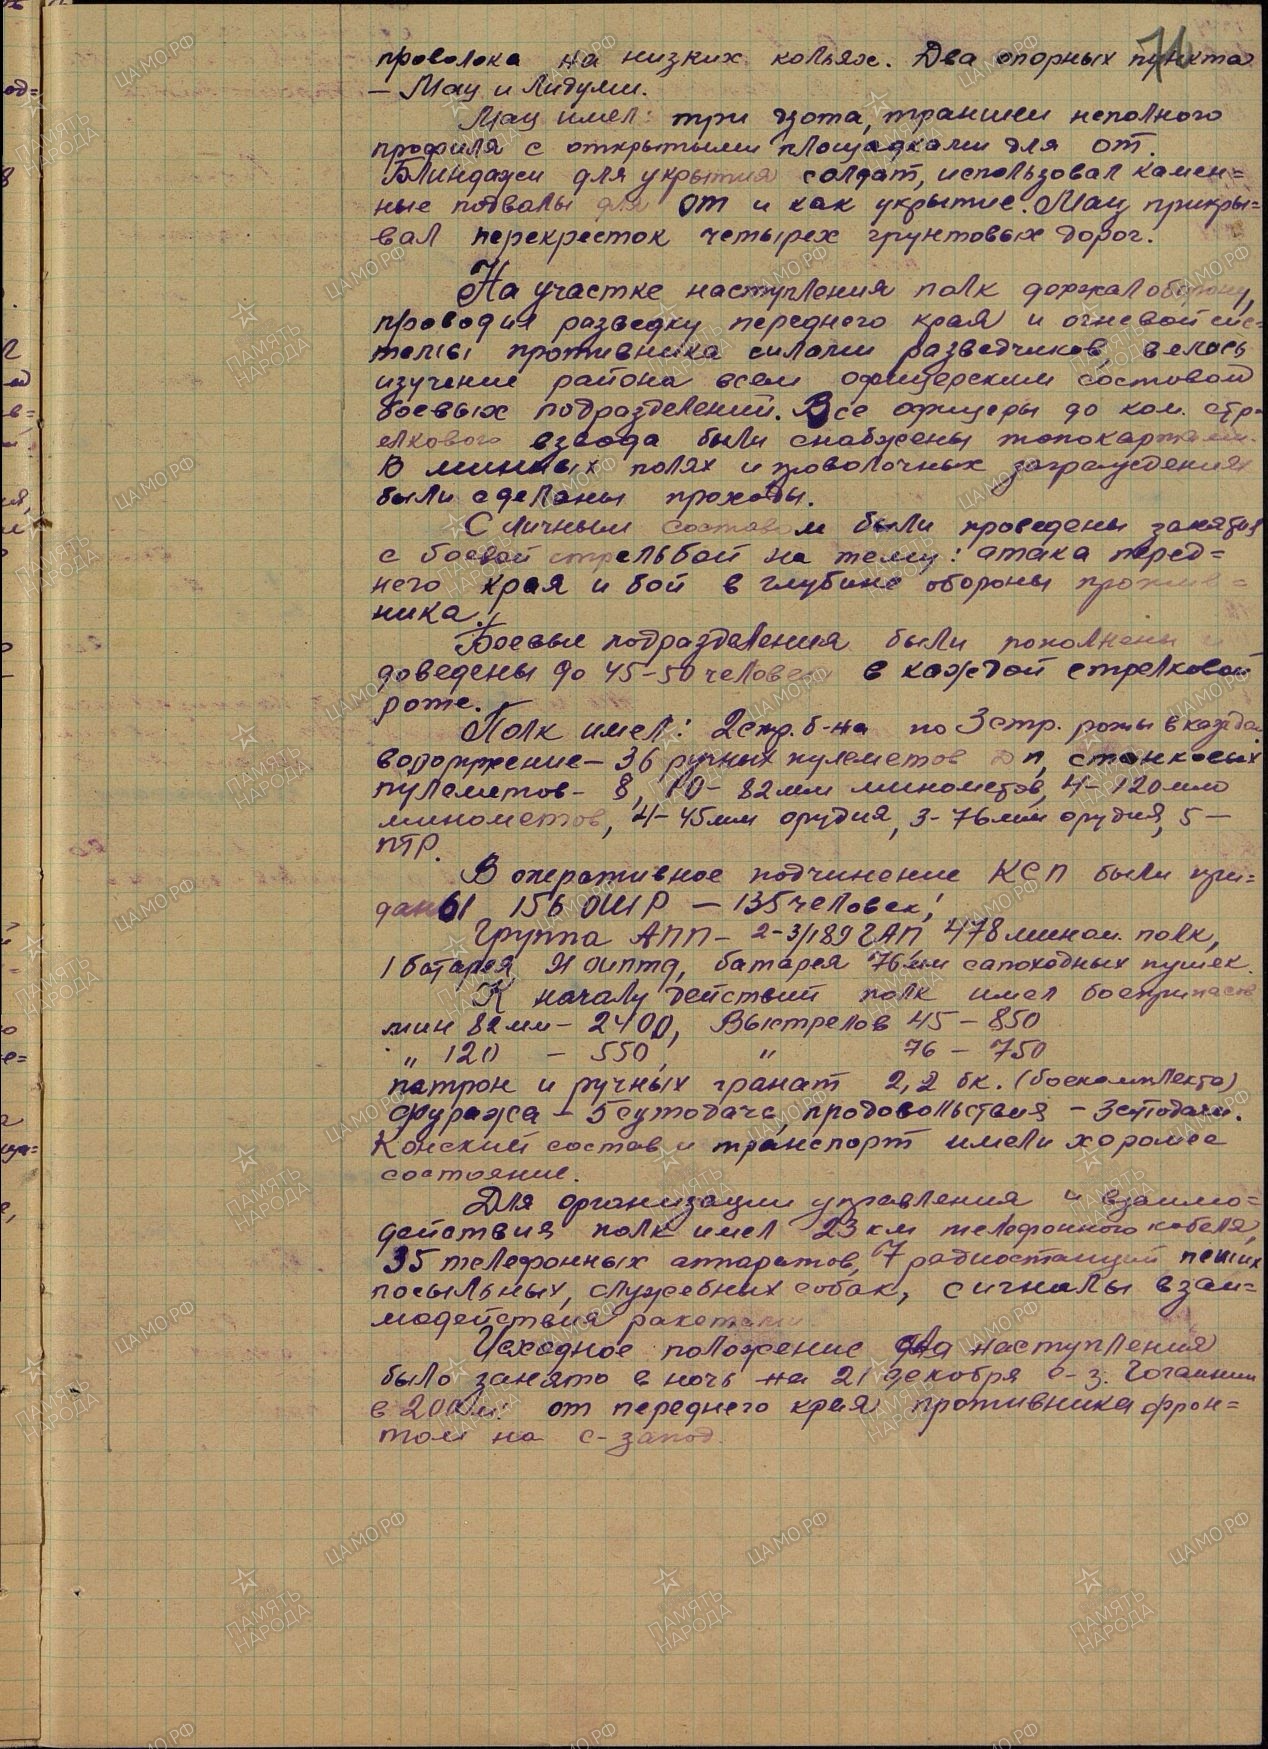 71
проволока на низких кольях. Два опорных пункта
– Мац и Лидуми.
Мац имел: три дзота, траншеи неполного
профиля с открытыми площадками для от.
Блиндажи для укрытия солдат, использовал камен=
ные подвалы для от и как укрытие. Мац прикры=
вал перекресток четырех грунтовых дорог.
На участке наступления полк держал оборону,
проводил разведку переднего края и огневой сис=
темы противника силами разведчиков, велось
изучение района всем офицерским составом
боевых подразделений. Все офицеры до ком. стр=
елкового взвода были снабжены топокартами.
В минных полях и проволочных заграждениях
были сделаны проходы.
С личным составом были проведены занятия
с боевой стрельбой на тему: атака перед=
него края и бой в глубине обороны против=
ника.
Боевые подразделения были пополнены и
доведены до 45-50 человек в каждой стрелковой
роте.
Полк имел: 2 стр. б-на по 3 стр. роты в каждом
вооружение – 36 ручных пулеметов ДП, станковых
пулеметов – 8, 10 – 82мм минометов, 4 – 120мм
минометов, 4 – 45мм орудия, 3 – 76мм орудия, 5 –
ПТР.
В оперативное подчинение КСП были при=
даны 156 ОШР – 135 человек,
Группа АПП – 2-3/189 ГАП 478 мином. полк,
1 батарея оиптд, батарея 76мм самоходных пушек.
К началу действий полк имел боеприпасов
мин 82мм – 2400, Выстрелов 45 – 850
„ 120 – 550, „ 76 – 750
патрон и ручных гранат 2,2 бк. (боекомплекта)
Фуража – 5 сутодача, продовольствия – 3 с/дачи.
Конский состав и транспорт имели хорошее
состояние.
Для организации управления и взаимо=
действия полк имел 23 км телефонного кабеля,
35 телефонных аппаратов, 7 радиостанций пеших
посыльных, служебных собак, сигналы взаи=
модействия ракетами.
Исходное положение для наступления
было занято в ночь на 21 декабря с-з.
в 200м. от переднего края противника фрон=
том на с-запад.